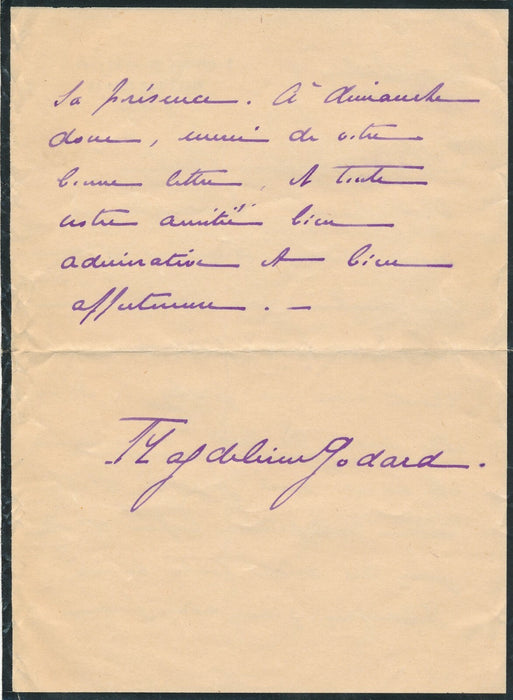 sa présence. À dimanche
donc, merci de votre
bonne lettre, et toute
votre amitié bien
admirative et bien
affectueuse. —
Magdeleine Godard.